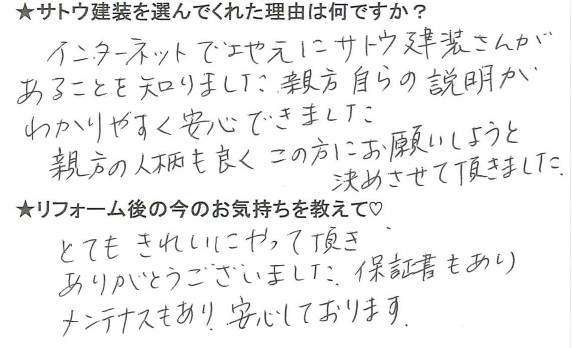 ★サトウ建装を選んでくれた理由は何ですか？
インターネットで近所にサトウ建装さんが
あることを知りました。親方自らの説明が
わかりやすく安心できました
親方の人柄も良くこの方にお願いしようと
決めさせて頂きました。
★リフォーム後の今のお気持ちを教えて♡
とてもきれいにやって頂き
ありがとうございました。保証書もあり
メンテナスもあり、安心しております。